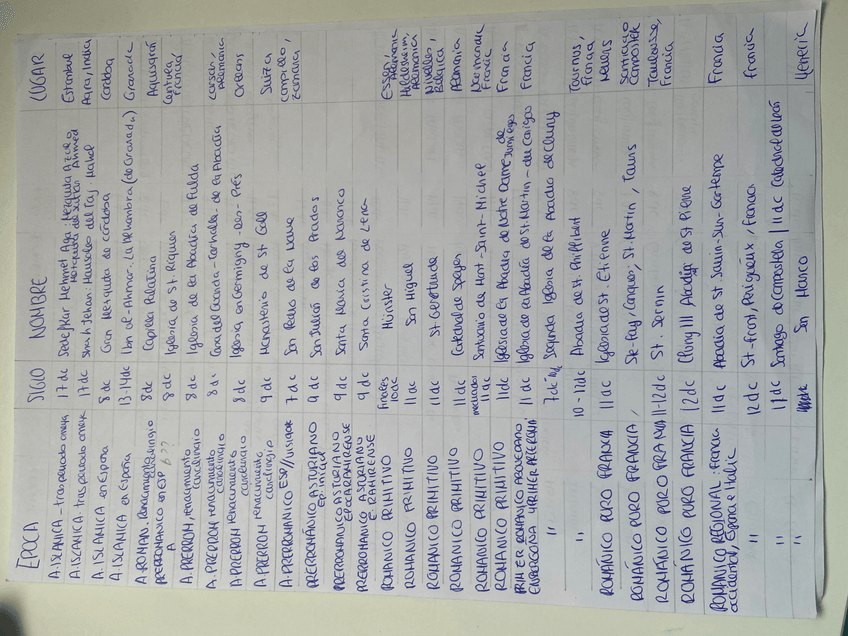 EPOCA SIGLO NOMBRE LUGAR
A. ISLAMICA - tras periodo omeya 17 dc Sedefkar Mehmet Aga: Mezquita Azul o Mezquita del Sultan Ahmed Estanbul
A. ISLAMICA tras periodo omeya 17 dc Shah Jehan: Mausoleo del Taj Mahal Agra, India
A. ISLAMICA en España 8 dc Gran Mezquita de Córdoba Cordoba
A. ISLAMICA en España 13-14 dc Ibn al-Ahmar. La Alhambra (de Granada) Granada
A. ROMAN. Renacimy carolingio 8 dc Capilla Palatina Aquisgrán
PRERROMANICO en ESP 6?? 8 dc Iglesia de St Riquier Centula Francia
A. PRERROM renacimiento carolingio 8 dc Iglesia de la Abadia de Fulda
A. PRERROM renacimiento carolingio 8 dc de la Abadia Lorsch, Alemania
A. PRERROM renacimiento carolingio 8 dc Iglesia en Germigny-des-Prés Orleans
A. PRERROM renacimiento carolingio 9 dc Monasterio de St Gall Suiza
A. PRERROMANICO ESP/visigodo 7 dc San Pedro de la Nave campillo, Zamora
PRERROMÁNICO ASTURIANO 9 dc San Julián de los Prados
PRERROMANICO ASTURIANO EPOCA RAMIRENSE 9 dc Santa Maria del Naranco
PRERROMANICO ASTURIANO E. RAMIRENSE 9 dc Santa Cristina de Lena
ROMANICO PRIMITIVO finales 10 dc Münster Essen, Alemania
ROMANICO PRIMITIVO 11 dc San Miguel Hildesheim, Alemania
ROMANICO PRIMITIVO 11 dc St Gertrude Nivelles, Belgica
ROMANICO PRIMITIVO 11 dc Catedral de Speyer Alemania
ROMANICO PRIMITIVO mediados 11 dc Santuario de Mont-Saint-Michel Normandia Francia
ROMANICO PRIMITIVO 11 dc Iglesia de la Abadia de Notre Dame de Jumièges Francia
PRIMER ROMANICO 11 dc Iglesia de la Abadia de St. Martin-du-Canigou Francia
" Segunda Iglesia de la Abadia de Cluny
" 10-11 dc Abadia de St. Philibert Tournus, Francia
ROMÁNICO PURO FRANCIA 11 dc Iglesia de St. Etienne Nevers
ROMÁNICO PURO FRANCIA, Ste-Foy, Conques; St. Martin, Tours Santiago Compostela
ROMÁNICO PURO FRANCIA 11-12 dc St. Sernin Toulousse, Francia
ROMÁNICO PURO FRANCIA 12 dc Cluny III Abadia de St Pierre
ROMANICO REGIONAL: Francia occidental, España e Italia 11 dc Abadia de St Savin-Sur-Gartempe Francia
" 12 dc St-Front, Périgueux, Francia Francia
" 11 dc Santiago de Compostela / 11 dc Catedral de
" San Marco Venecia